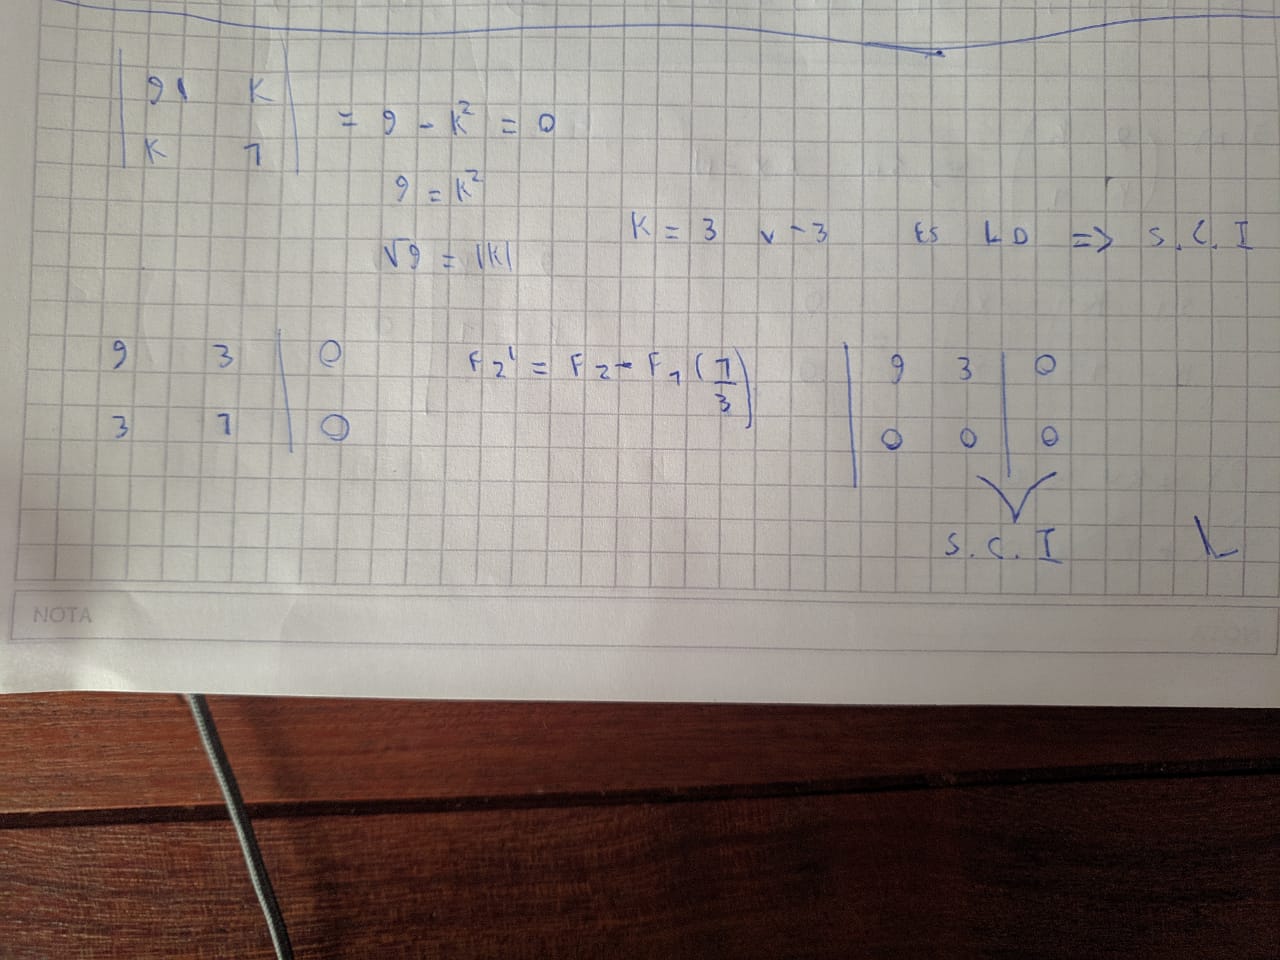 | 9 K |
= 9 - K² = 0
| K 1 |
9 = K²
√9 = |K|
K = 3 v -3 ES LD => S.C.I
9 3 | 0
3 1 | 0
F2' = F2 - F1 (1/3)
| 9 3 | 0
| 0 0 | 0
S.C.I
L
NOTA